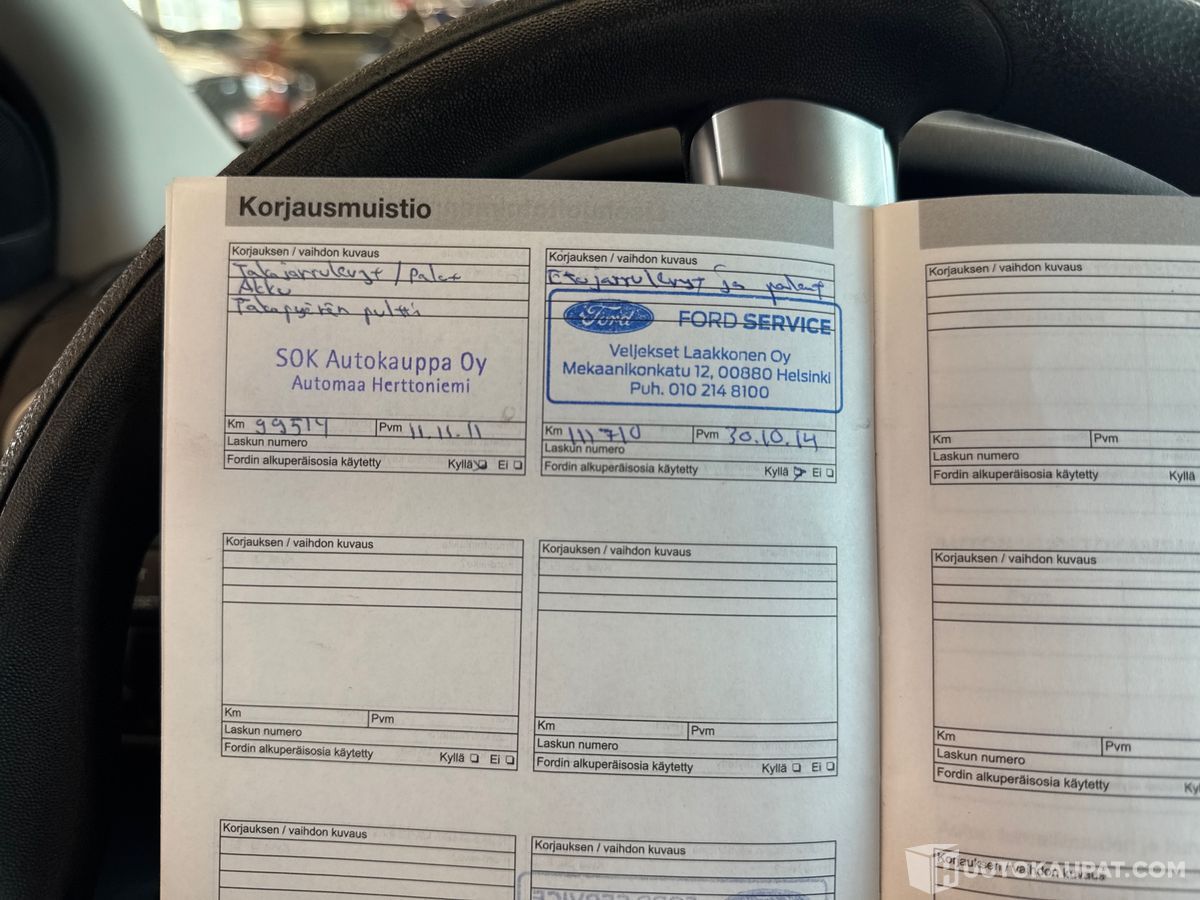 Korjausmuistio
Korjauksen / vaihdon kuvaus
Takajarrulevyt / palat
Akku
Takapyörän pultti
SOK Autokauppa Oy
Automaa Herttoniemi
Km 99514 Pvm 11.11.11
Laskun numero
Fordin alkuperäisosia käytetty Kyllä Ei
Korjauksen / vaihdon kuvaus
Etujarrulevyt ja palat
Ford FORD SERVICE
Veljekset Laakkonen Oy
Mekaanikonkatu 12, 00880 Helsinki
Puh. 010 214 8100
Km 111710 Pvm 30.10.14
Laskun numero
Fordin alkuperäisosia käytetty Kyllä Ei
Korjauksen / vaihdon kuvaus
Km Pvm
Laskun numero
Fordin alkuperäisosia käytetty Kyllä
Korjauksen / vaihdon kuvaus
Km Pvm
Laskun numero
Fordin alkuperäisosia käytetty Kyllä Ei
Korjauksen / vaihdon kuvaus
Km Pvm
Laskun numero
Fordin alkuperäisosia käytetty Kyllä Ei
Korjauksen / vaihdon kuvaus
Km Pvm
Laskun numero
Fordin alkuperäisosia käytetty Ky
Korjauksen / vaihdon kuvaus
Korjauksen / vaihdon kuvaus
Korjauksen / vaihdon kuvaus
HUUTOKAUPAT.COM